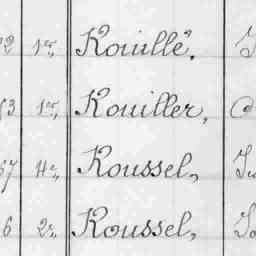 2 1e, Rouillé,
53 1e, Rouiller,
67 4e, Roussel,
6 2e, Roussel,